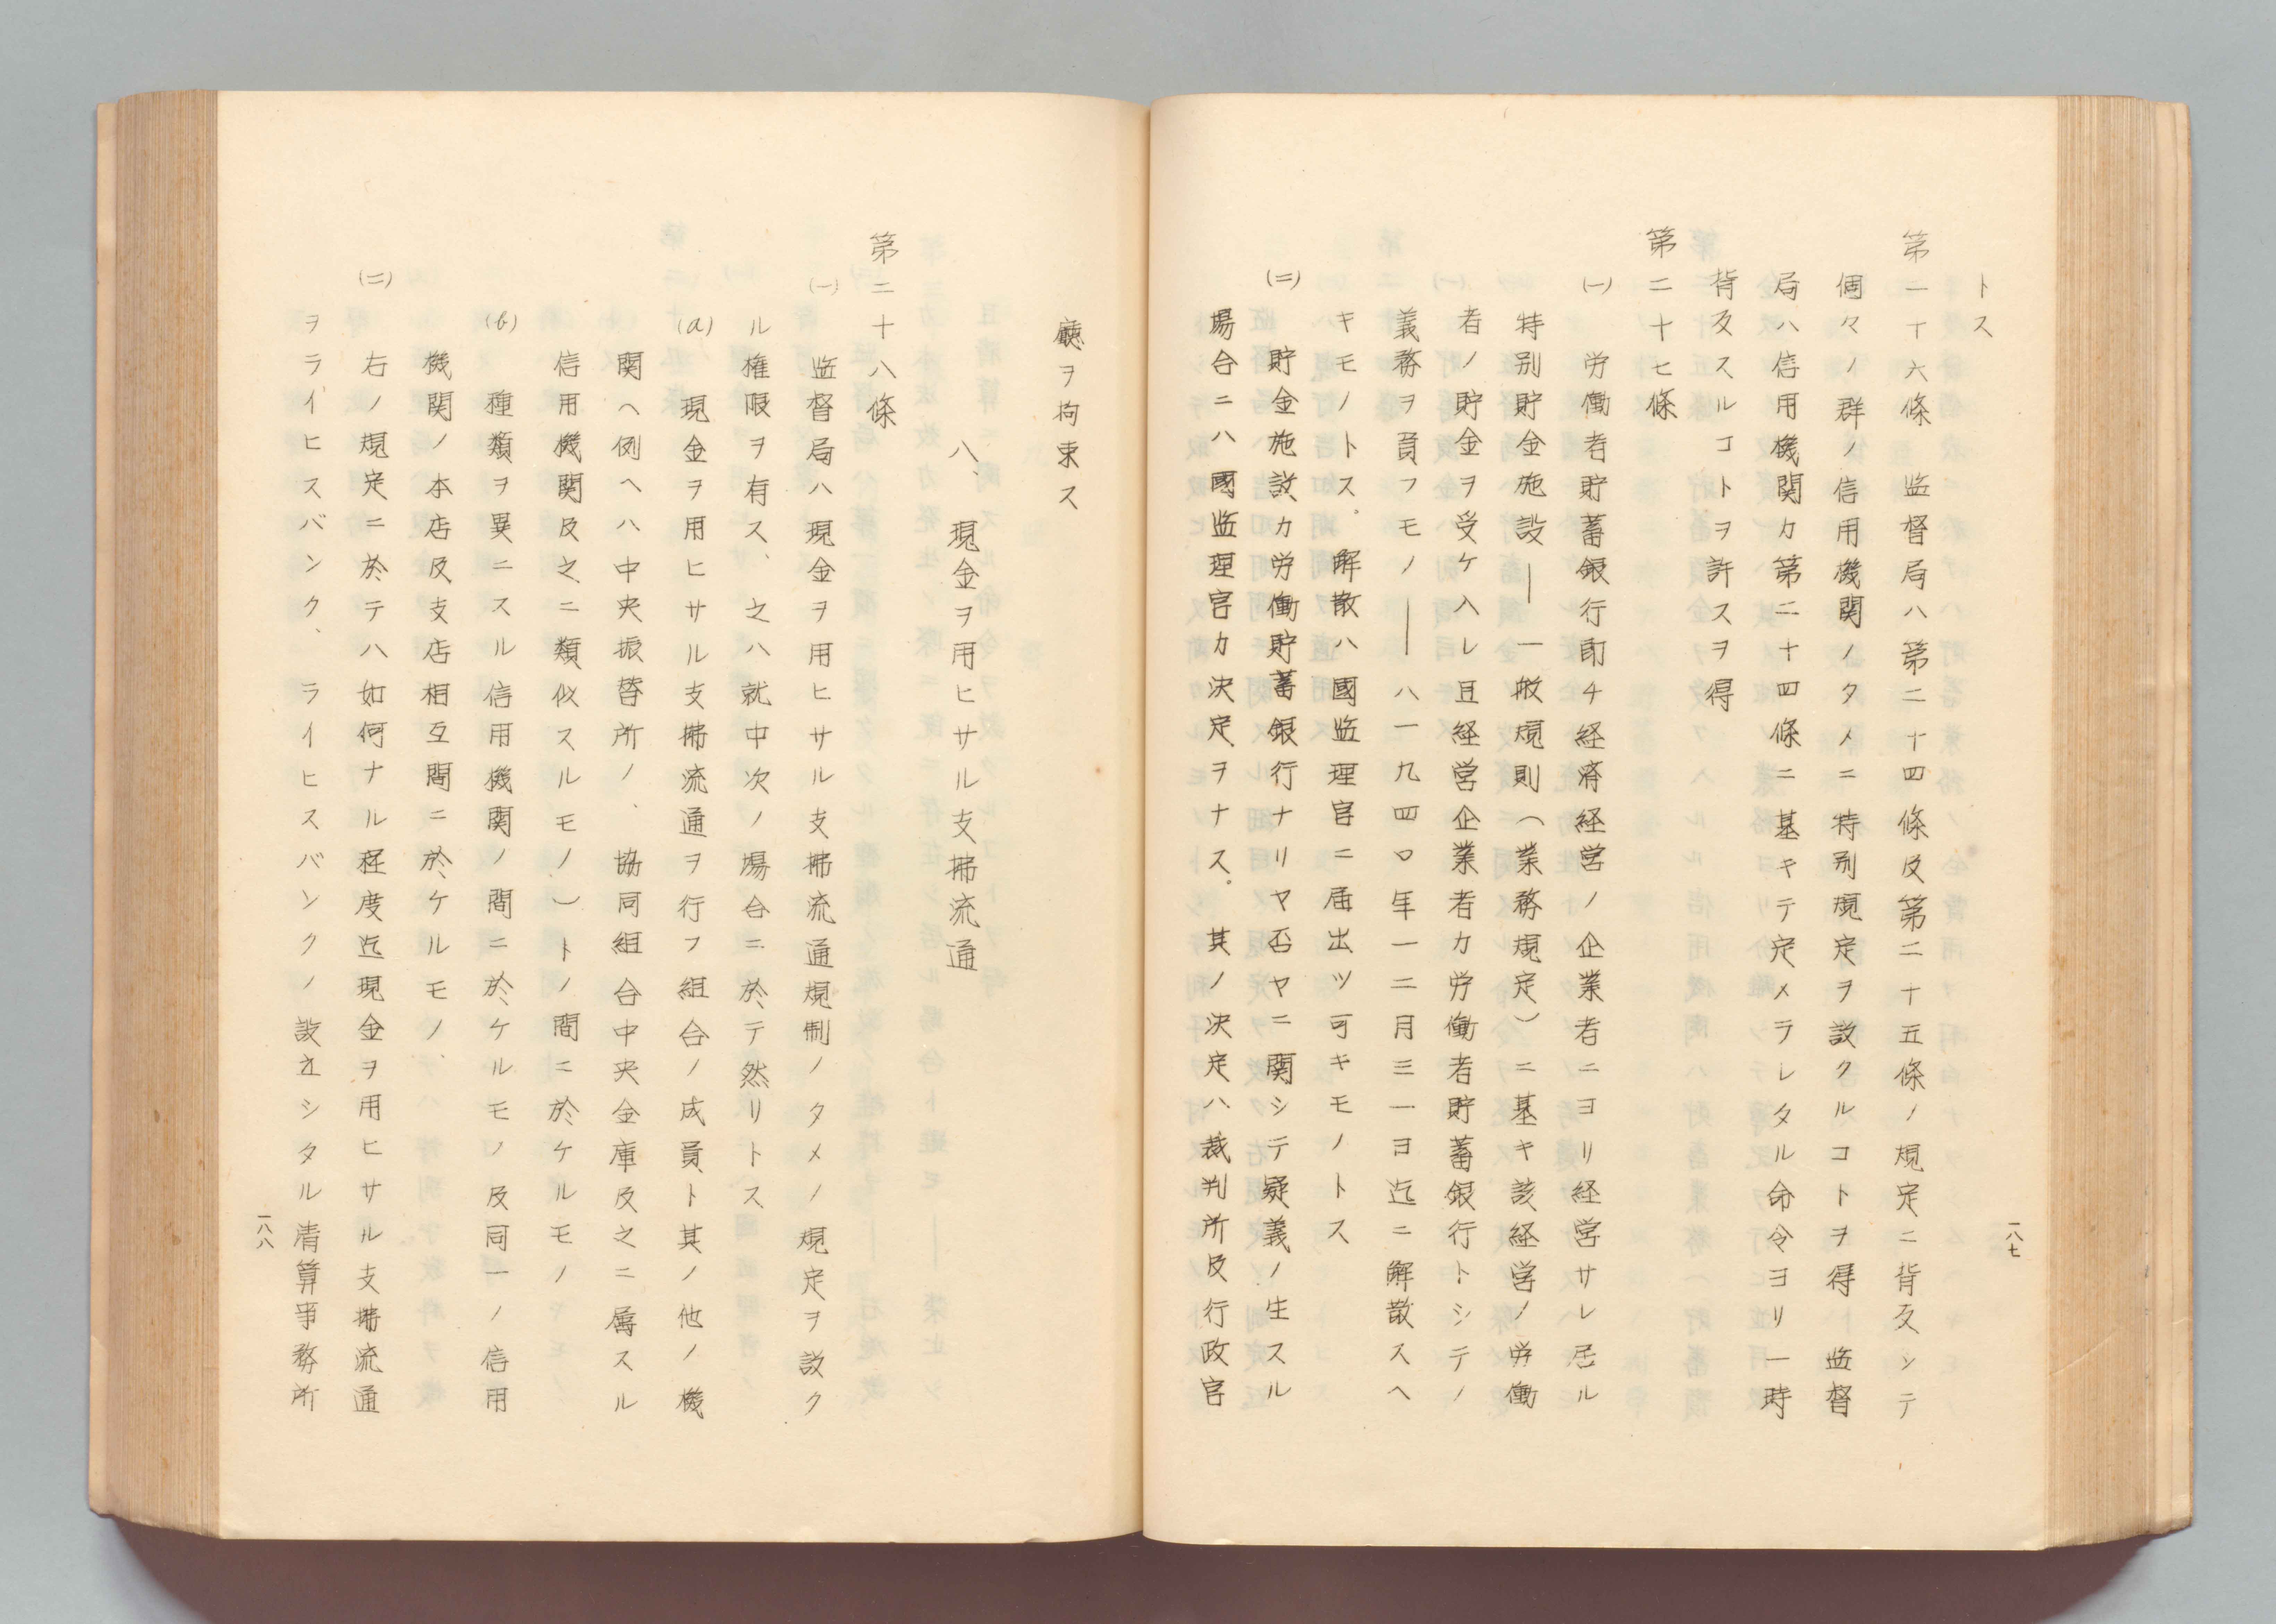 トス
第二十六條　監督局ハ第二十四條及第二十五條ノ規定ニ背反シテ
個々ノ群ノ信用機関ノタメニ特別規定ヲ設クルコトヲ得　監督
局ハ信用機関カ第二十四條ニ基キテ定メラレタル命令ヨリ一時
背反スルコトヲ許スヲ得
第二十七條
(一)　労働者貯蓄銀行即チ経済経営ノ企業者ニヨリ経営サレ居ル
特別貯金施設――一般規則（業務規定）ニ基キ該経営ノ労働
者ノ貯金ヲ受ケ入レ且経営企業者カ労働者貯蓄銀行トシテノ
義務ヲ負フモノ――ハ一九四〇年一二月三一ヨ迄ニ解散スヘ
キモノトス。解散ハ國監理官ニ届出ツ可キモノトス
(二)　貯金施設カ労働貯蓄銀行ナリヤ否ヤニ関シテ疑義ノ生スル
場合ニハ國監理官カ決定ヲナス。其ノ決定ハ裁判所及行政官
一八七
廳ヲ拘束ス
八、現金ヲ用ヒサル支拂流通
第二十八條
(一)　監督局ハ現金ヲ用ヒサル支拂流通規制ノタメノ規定ヲ設ク
ル権限ヲ有ス、之ハ就中次ノ場合ニ於テ然リトス
(a)　現金ヲ用ヒサル支拂流通ヲ行フ組合ノ成員ト其ノ他ノ機
関ヘ例ヘハ中央振替所ノ、協同組合中央金庫及之ニ属スル
信用機関及之ニ類似スルモノ）トノ間ニ於ケルモノ
(b)　種類ヲ異ニスル信用機関ノ間ニ於ケルモノ及同一ノ信用
機関ノ本店及支店相互間ニ於ケルモノ、
(二)　右ノ規定ニ於テハ如何ナル程度迄現金ヲ用ヒサル支拂流通
ヲライヒスバンク、ライヒスバンクノ設立シタル清算事務所
一八八